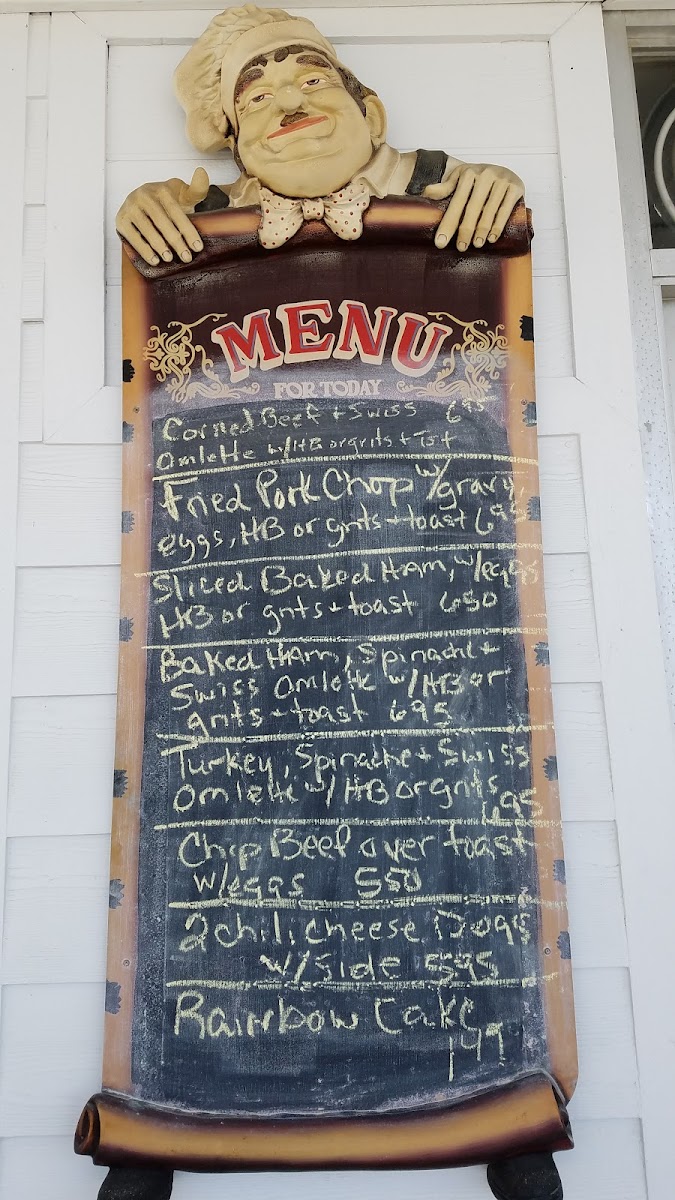 MENU
FOR TODAY
Corned Beef + Swiss 6 95
Omlette w/HB or grits + Tst
Fried Pork Chop w/gravy,
eggs, HB or grits + toast 6 95
Sliced Baked HAm, w/eggs
HB or grits + toast 6 50
Baked HAm, Spinache +
Swiss Omlette w/HB or
grits + toast 6 95
Turkey, Spinache + Swiss
Omlette w/HB or grits
6 95
Chip Beef over toast
w/eggs 5 50
2 chili cheese Dogs
w/side 5 95
Rainbow Cake
1 49